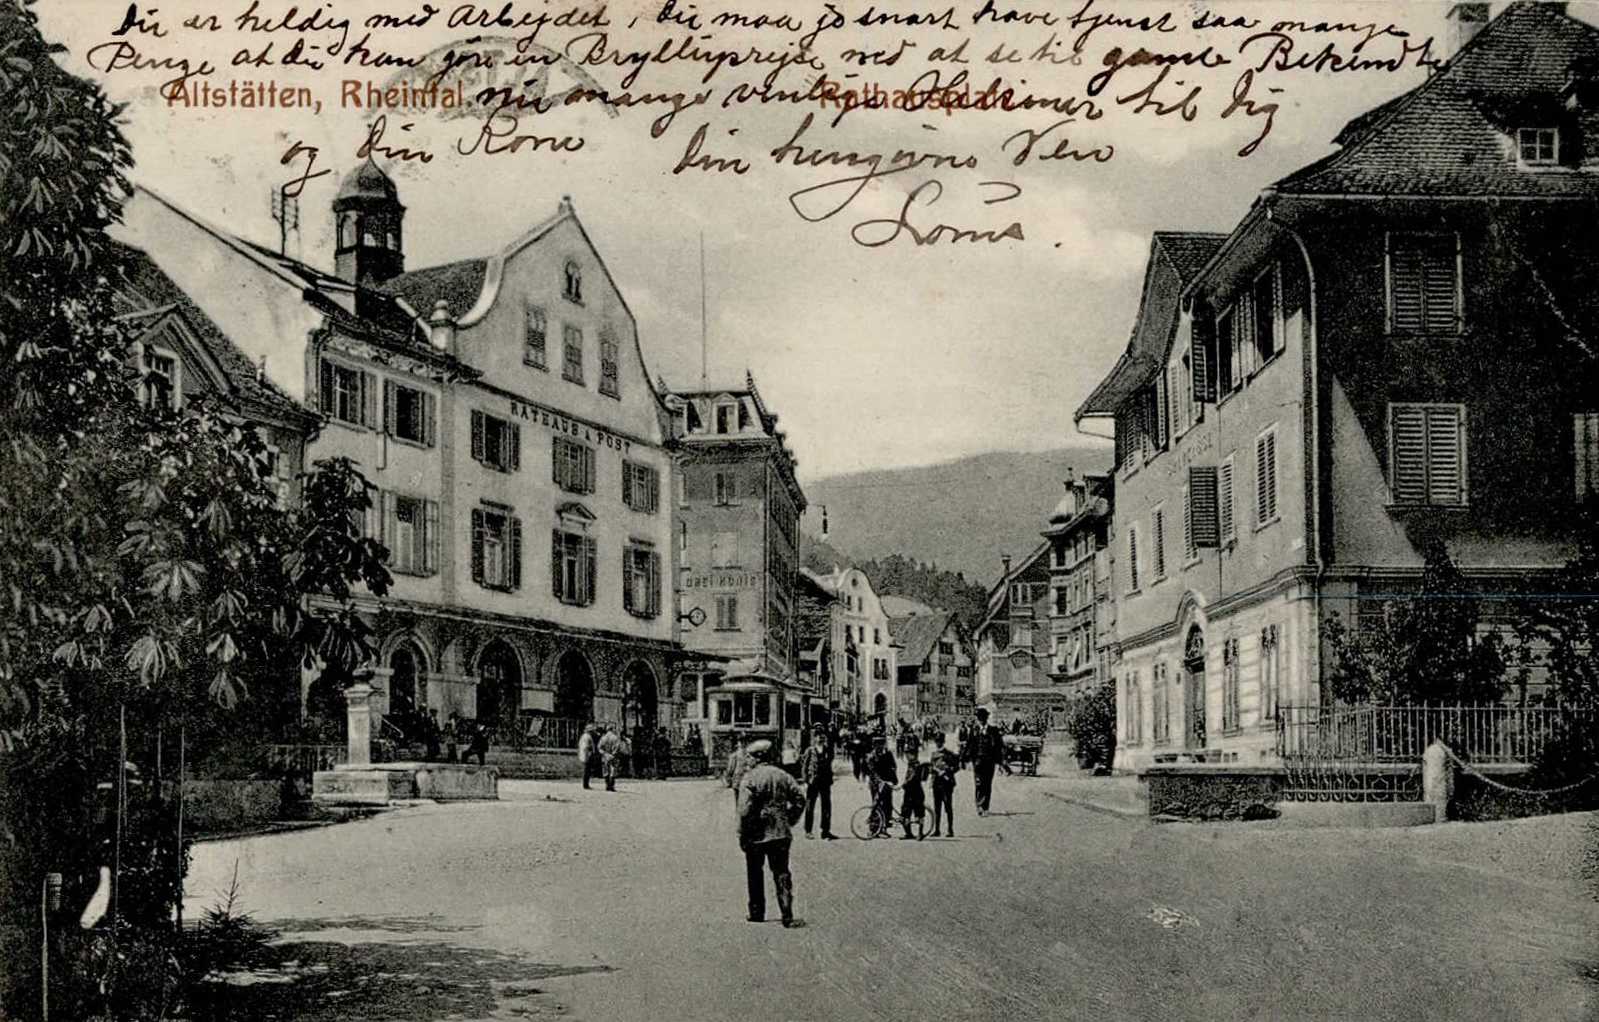 Du er heldig med Arbejdet, Du maa jo snart have tjent saa mange
Penge at Du kan gøre en Bryllupsrejse ned at se til gamle Bekendte
Altstätten, Rheintal. Rathausplatz
nu mange venlige Hilsener til Dig
og Din Kone Din hengivne Ven
RATHAUS & POST
DREI KÖNIG